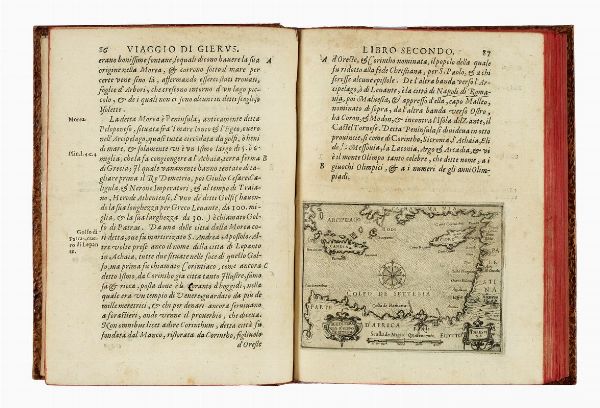 86 VIAGGIO DI GIERVS.
erano bonissime fontane, le quali dicono hauere la sua
origine nella Morea, & corrono sotto il mare per
certe vene sino là, affermando essersi stati trouati,
foglie d'Arbori, che cresceno intorno d'vn lago piccolo,
& de i quali non ci sono alcuni in dette
Isolette.
Morea.
La detta Morea è Peninsula, anticamente detta
Peloponeso, situata fra'l mare Ionco & l'Egeo, ouero
nell'Arcipelago, quasi tutta circondata da golfi, ò seni
di mare, & solamente vi è vn istmo largo di 5. ò 6
Plin.l.4.c.4
miglia, che la fa congiungere all'Achaia, terra ferma B
di Grecia; Il quale vanamente hanno tentato di tagliare
prima il Re Demetrio, poi Giulio Cesare, Caligula,
& Nerone Imperatori, & al tempo di Traiano,
Herode Atheniense, l'vno de dite Golfi (hauendo
la sua longhezza per Greco Leuante, da 100. miglia,
& la sua larghezza da 30.) è chiamato Golfo
Golfo di
Patrasso,
ro di Lepanto.
di Patras. Da vna delle città della Morea così
detta, oue fu martirizato S. Andrea Apostolo. Altre
volte prese anco il nome dalla città di Lepanto
in Achaia, tutte due situate nelle foce di quello Golfo,
ma prima fu chiamato Corintiaco, come ancora C
detto Istmo, da Corintho gia città tanto Illustre, famosa
& ricca, posta doue è Coranto d'hoggidi, nella
quale era vn tempio di Venere guardato da piu de
mille meretrici, & chi per denari ancora seruiuano
a forastieri, onde venne il prouerbio, che diceua.
Non omnibus licet adire Corinthum, detta città fu
fondata dal Manco, ristorata da Corintho, figliuolo
d'Oreste
LIBRO SECONDO. 87
A d'Oreste, & Corintho nominata, il popolo della quale
fu ridotto alla fede Christiana, per S. Paolo, & a chi
scresse alcune epistole. De l'altra banda verso l'Arcipelago,
ò di Leuante, è la città di Napoli di Romania,
poi Maluesia, & appresso d'essa, capo Malleo,
nominato di sopra, dal'altra banda verso Ostro,
ha Coron, & Modon, & incontra l'Isola del Zante, il
Castel Tornese. Detta Peninsula si diuidena in otto
prouincie, si come di Corintho, Sicionia, Achaia, Elide,
Messenia, la Laconia, Argo & Arcadia, & vi
è il monte Olimpo tanto celebre, che dette nome, a i
B giuochi Olimpici, & a i numero de gli anni Olimpiadi.
ARCIPELAGO
RODI
CANDIA
GOLFO DE SETTELIA
PARTE
D'AFRICA
EGITTO